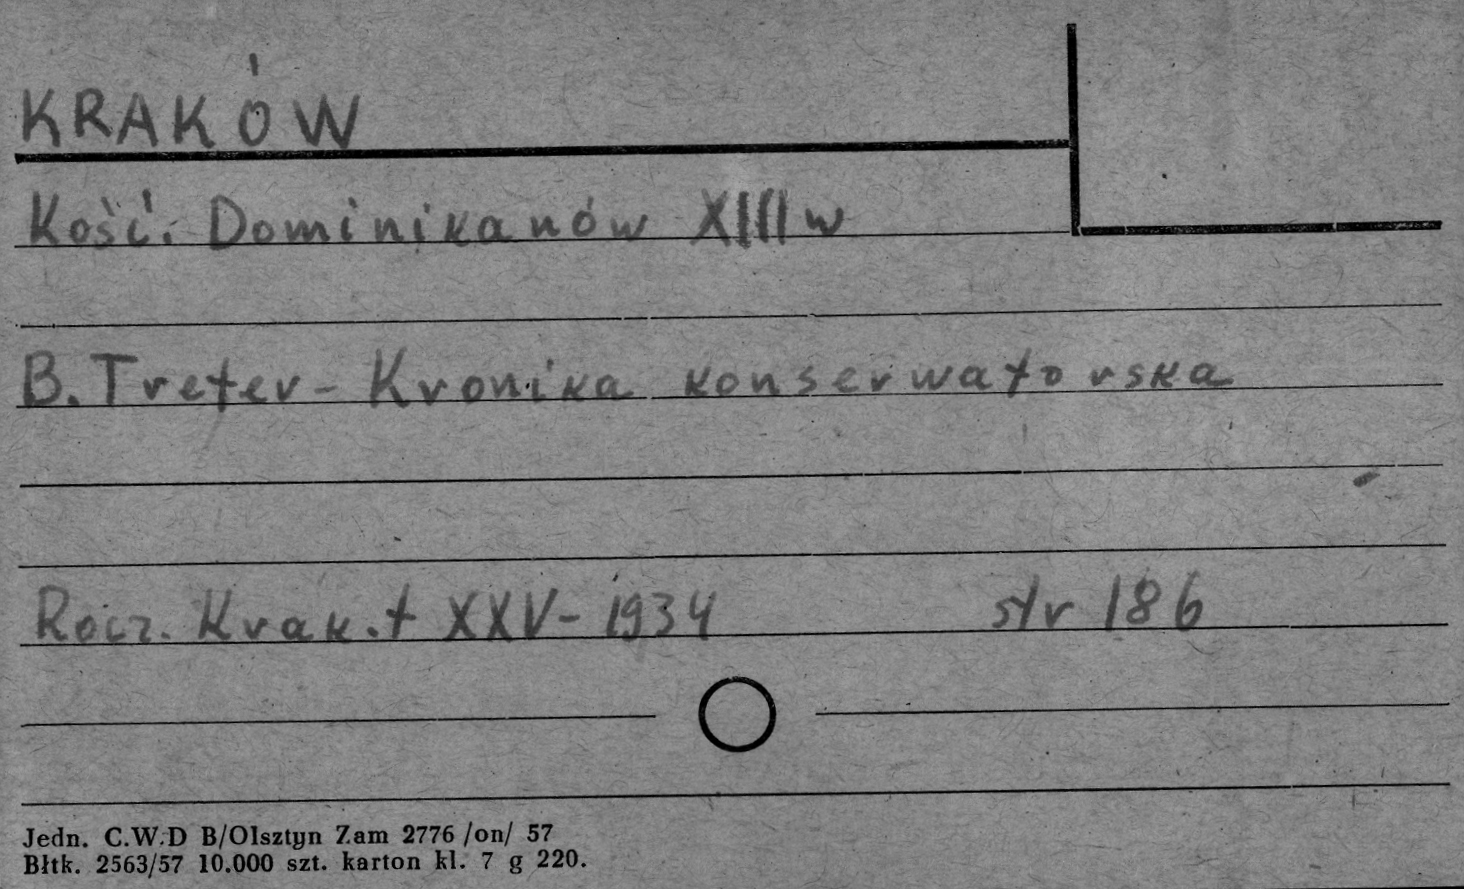 KRAKÓW
Kość. Dominikanów XIII w
B. Treter - Kronika konserwatorska
Rocz. Krak. t XXV - 1934 str 186
Jedn. C.W.D B/Olsztyn Zam 2776 /on/ 57
Błtk. 2563/57 10.000 szt. karton kl. 7 g 220.